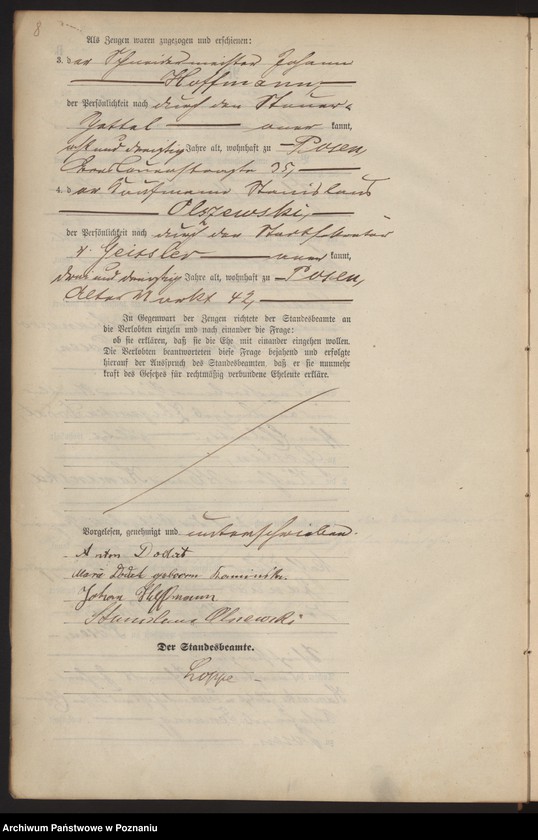 8
Als Zeugen waren zugezogen und erschienen:
3. der Schneidermeister Johann
Hoffmann,
der Persönlichkeit nach durch den Steuer-
kannt,
acht und dreißig Jahre alt, wohnhaft zu Posen,
4. der Kaufmann Stanislaus
Olszewski,
der Persönlichkeit nach durch den Stadtsekretär
v. Geissler kannt,
drei und dreißig Jahre alt, wohnhaft zu Posen,
Alter Markt 42,
In Gegenwart der Zeugen richtete der Standesbeamte an
die Verlobten einzeln und nach einander die Frage:
ob sie erklären, daß sie die Ehe mit einander eingehen wollen.
Die Verlobten beantworteten diese Frage bejahend und erfolgte
hierauf der Ausspruch des Standesbeamten, daß er sie nunmehr
kraft des Gesetzes für rechtmäßig verbundene Eheleute erkläre.
Vorgelesen, genehmigt und unterschrieben.
Anton Dodat
geboren
Johann Hoffmann
Stanislaus Olszewski
Der Standesbeamte.
Loppe
Archiwum Państwowe w Poznaniu